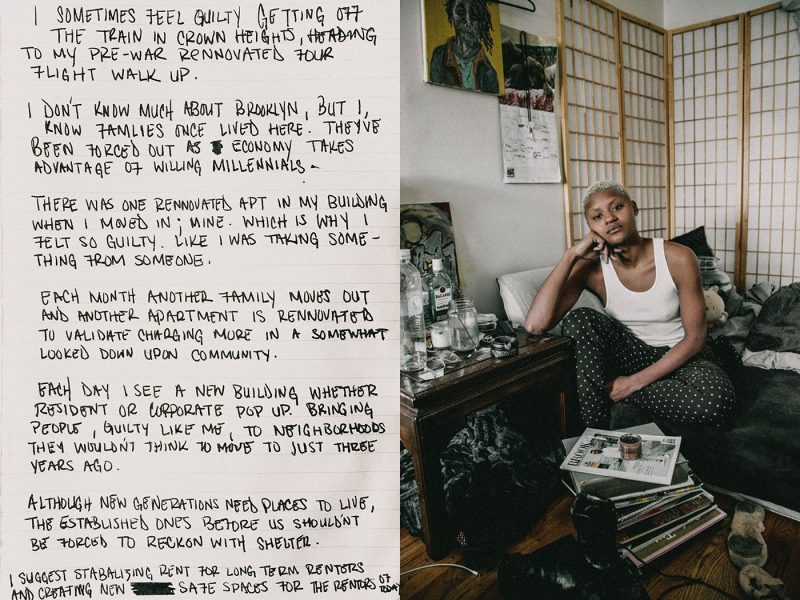 I SOMETIMES FEEL GUILTY GETTING OFF
THE TRAIN IN CROWN HEIGHTS, HEADING
TO MY PRE-WAR RENNOVATED FOUR
FLIGHT WALK UP.
I DON'T KNOW MUCH ABOUT BROOKLYN, BUT I,
KNOW FAMLIES ONCE LIVED HERE. THEY'VE
BEEN FORCED OUT AS ECONOMY TAKES
ADVANTAGE OF WILLING MILLENNIALS.
THERE WAS ONE RENNOVATED APT IN MY BUILDING
WHEN I MOVED IN; MINE. WHICH IS WHY I
FELT SO GUILTY. LIKE I WAS TAKING SOME-
THING FROM SOMEONE.
EACH MONTH ANOTHER FAMILY MOVES OUT
AND ANOTHER APARTMENT IS RENNOVATED
TO VALIDATE CHARGING MORE IN A SOMEWHAT
LOOKED DOWN UPON COMMUNITY.
EACH DAY I SEE A NEW BUILDING WHETHER
RESIDENT OR CORPORATE POP UP. BRINGING
PEOPLE, GUILTY LIKE ME, TO NEIGHBORHOODS
THEY WOULDN'T THINK TO MOVE TO JUST THREE
YEARS AGO.
ALTHOUGH NEW GENERATIONS NEED PLACES TO LIVE,
THE ESTABLISHED ONES BEFORE US SHOULDN'T
BE FORCED TO RECKON WITH SHELTER.
I SUGGEST STABALISING RENT FOR LONG TERM RENTERS
AND CREATING NEW SAFE SPACES FOR THE RENTORS OF TODAY